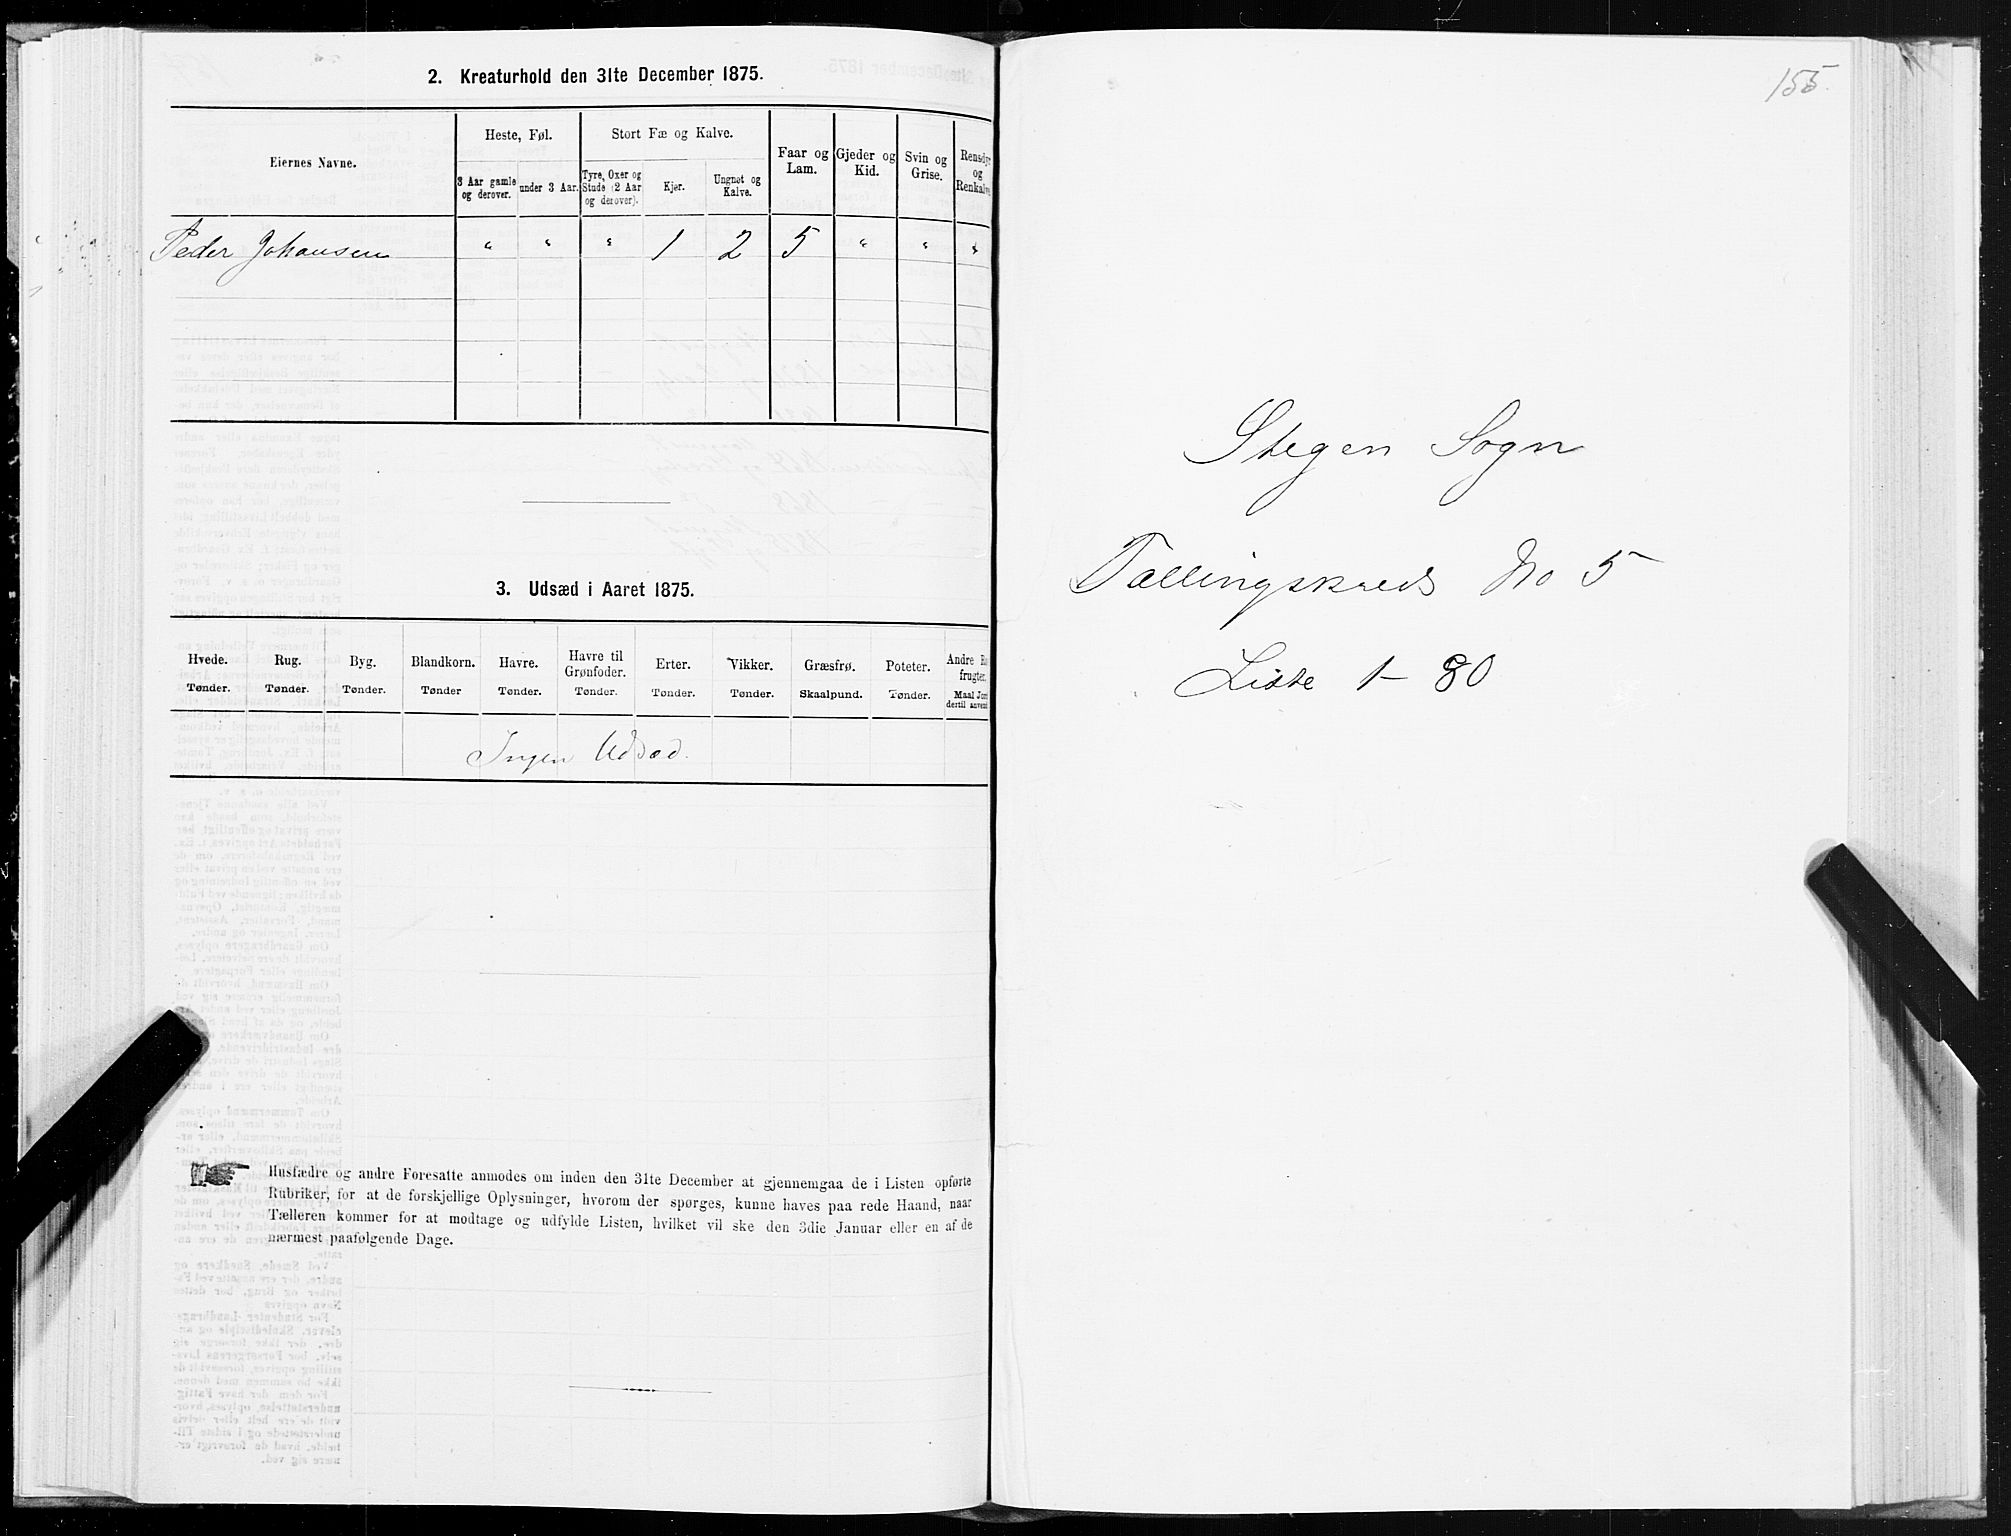 2. Kreaturhold den 31te December 1875.
Eiernes Navne.
Heste, Føl.
Stort Fæ og Kalve.
Faar og Lam.
Gjeder og Kid.
Svin og Grise.
Rensdyr og Renkalve.
3 Aar gamle og derover.
under 3 Aar.
Tyre, Oxer og Stude (2 Aar og derover).
Kjør.
Ungnøt og Kalve.
Peder Johansen " " " 1 2 5 " " "
3. Udsæd i Aaret 1875.
Hvede. Rug. Byg. Blandkorn. Havre. Havre til Grønfoder. Erter. Vikker. Græsfrø. Poteter. Andre
frugter.
Tønder. Tønder. Tønder. Tønder Tønder. Tønder. Tønder. Tønder. Skaalpund. Tønder. Maal
dertil
Ingen Udsæd.
Husfædre og andre Foresatte anmodes om inden den 31te December at gjennemgaa de i Listen opførte
Rubriker, for at de forskjellige Oplysninger, hvorom der spørges, kunne haves paa rede Haand, naar
Tælleren kommer for at modtage og udfylde Listen, hvilket vil ske den 3die Januar eller en af de
nærmest paafølgende Dage.
155.
Stegen Sogn
Tællingskreds No 5
Liste 1 - 80